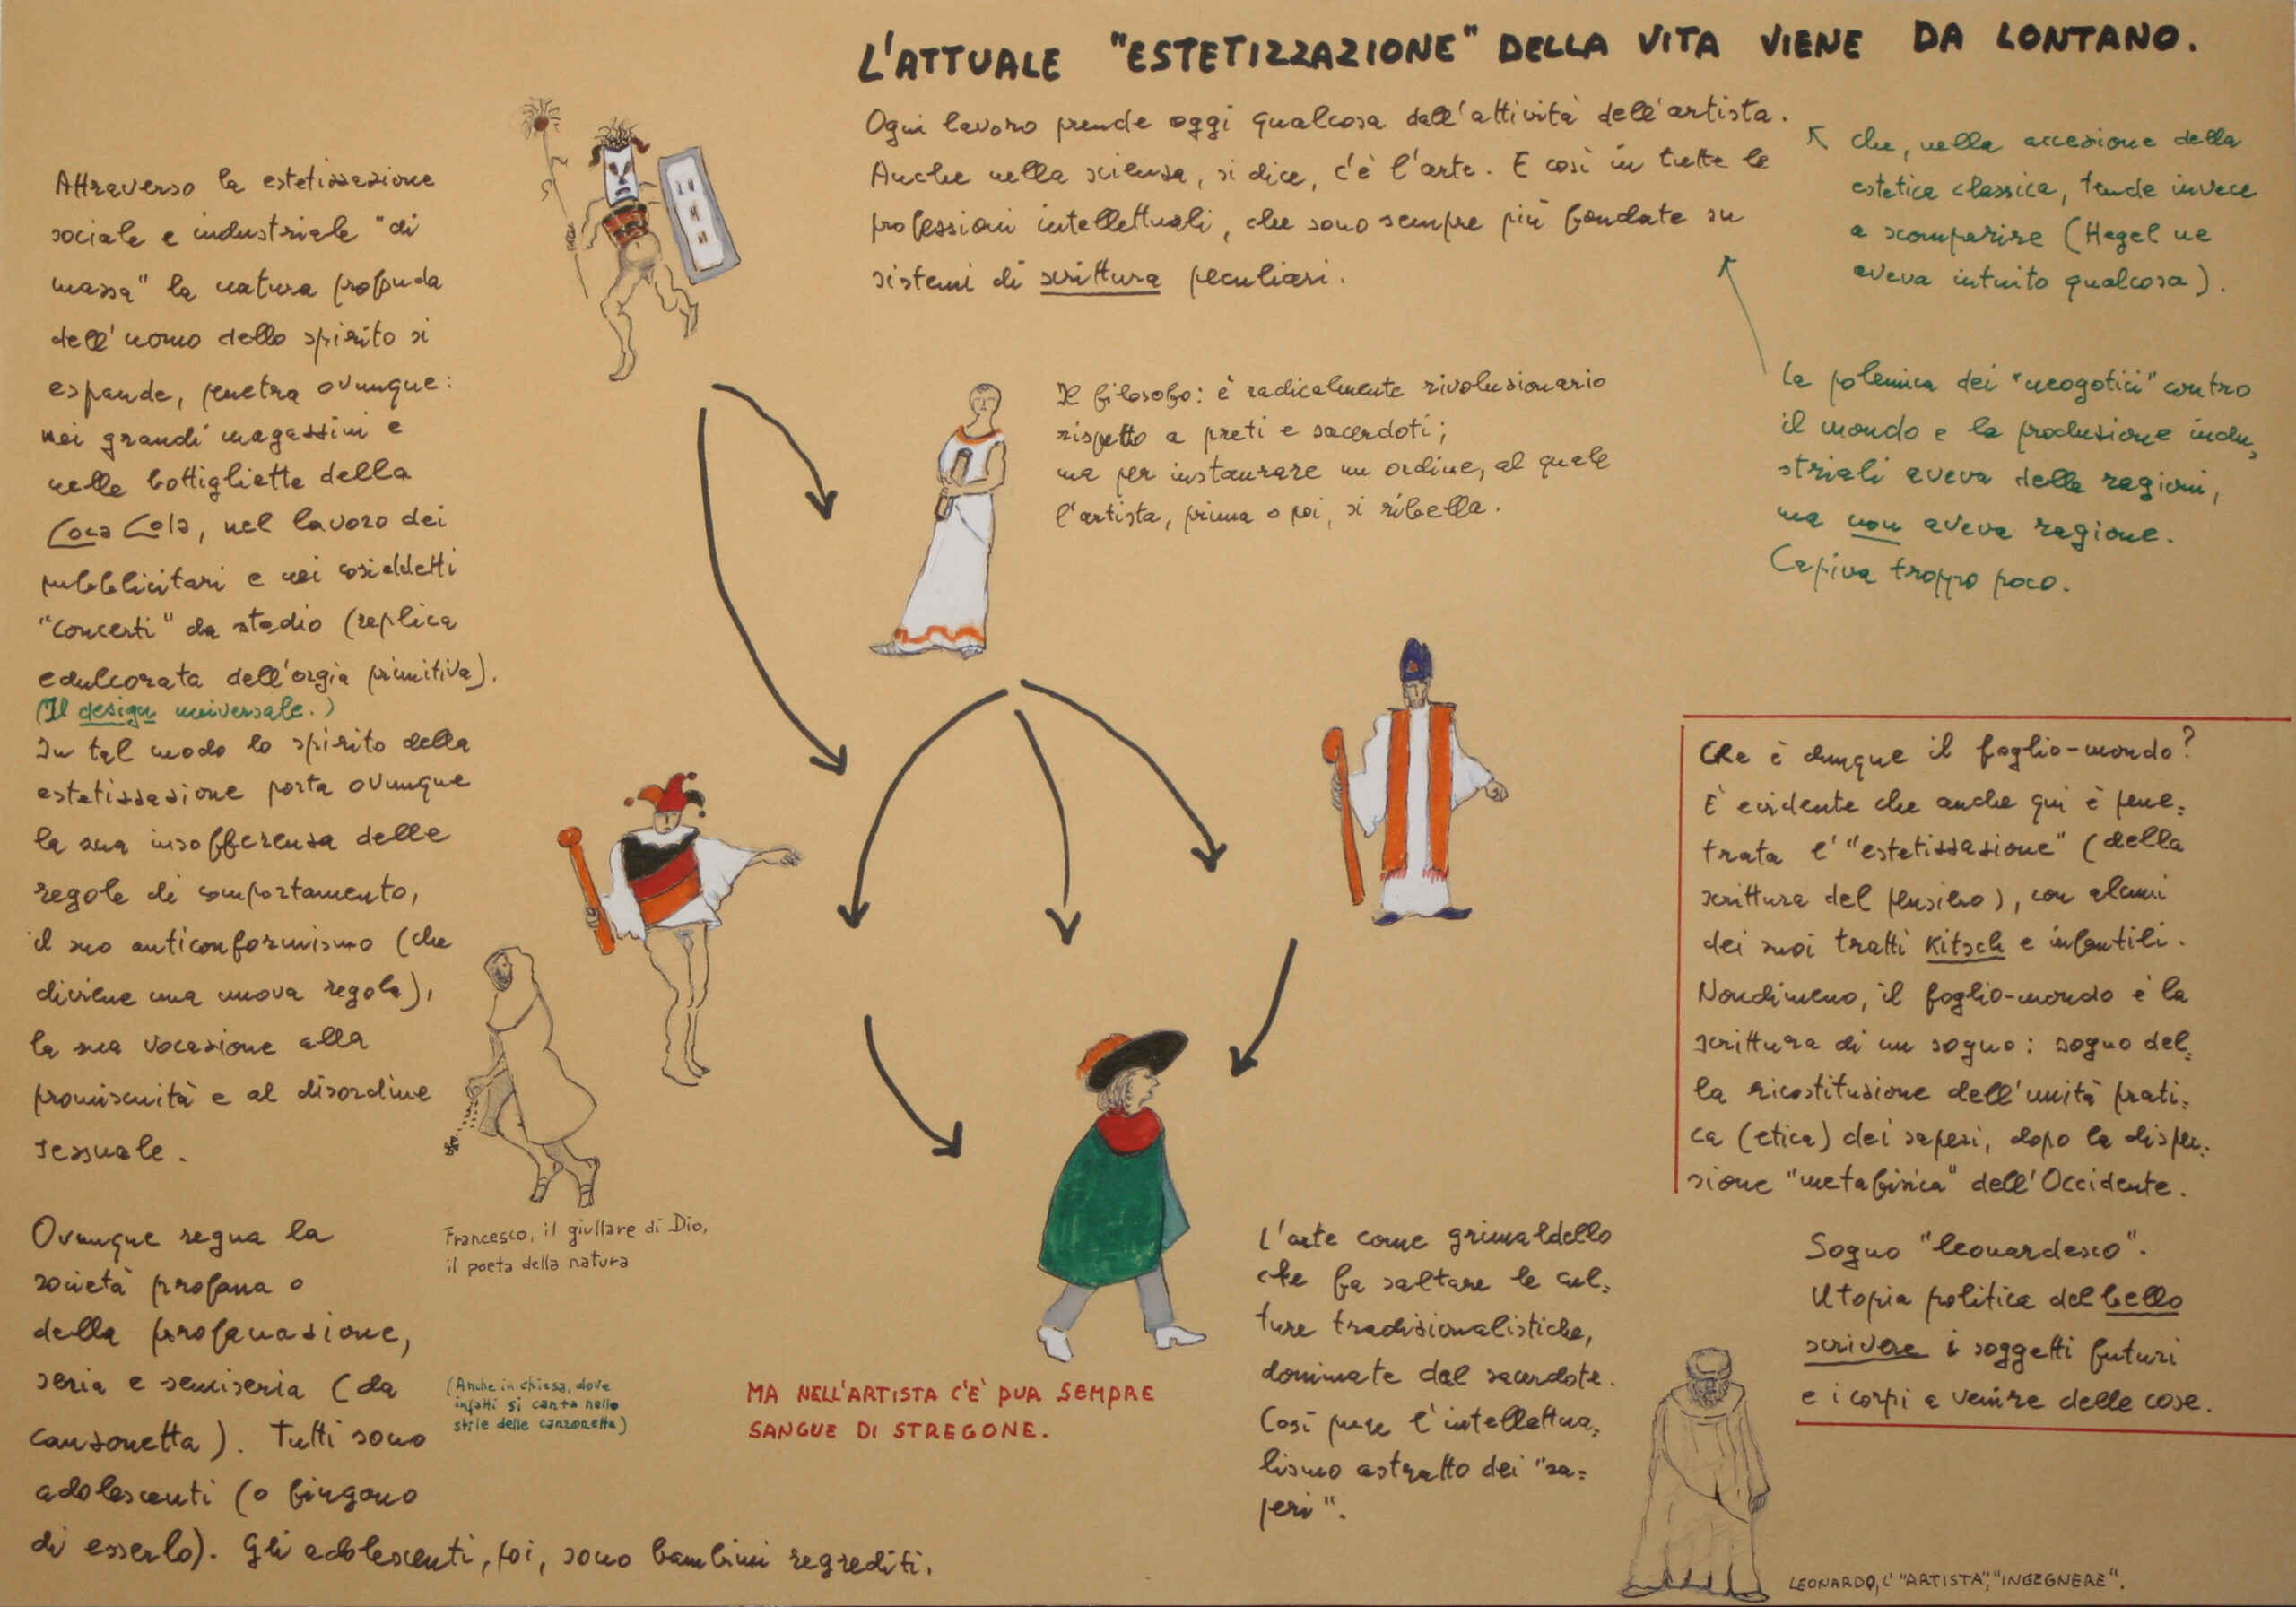 L'ATTUALE "ESTETIZZAZIONE" DELLA VITA VIENE DA LONTANO.
Ogni lavoro prende oggi qualcosa dall'attività dell'artista.
Anche nella scienza, si dice, c'è l'arte. E così in tutte le
professioni intellettuali, che sono sempre più fondate su
sistemi di scrittura peculiari.
che, nella accezione della
estetica classica, tende invece
a scomparire (Hegel ne
aveva intuito qualcosa).
La polemica dei "neogotici" contro
il mondo e la produzione indu=
striali aveva delle ragioni,
ma non aveva ragione.
Capiva troppo poco.
Il filosofo: è radicalmente rivoluzionario
rispetto a preti e sacerdoti;
ma per instaurare un ordine, al quale
l'artista, prima o poi, si ribella.
Attraverso la estetizzazione
sociale e industriale "di
massa" la natura profonda
dell'uomo dello spirito si
espande, penetra ovunque:
nei grandi magazzini e
nelle bottigliette della
Coca Cola, nel lavoro dei
pubblicitari e nei cosiddetti
"concerti" da stadio (replica
edulcorata dell'orgia primitiva).
(Il design universale.)
In tal modo lo spirito della
estetizzazione porta ovunque
la sua insofferenza delle
regole di comportamento,
il suo anticonformismo (che
diviene una nuova regola),
la sua vocazione alla
promiscuità e al disordine
sessuale.
Ovunque regna la
società profana o
della profanazione,
seria e semiseria (da
canzonetta). Tutti sono
adolescenti (o fingono
di esserlo). Gli adolescenti, poi, sono bambini regrediti.
(Anche in chiesa, dove
infatti si canta nello
stile delle canzonetta)
Francesco, il giullare di Dio,
il poeta della natura
MA NELL'ARTISTA C'È PUR SEMPRE
SANGUE DI STREGONE.
L'arte come grimaldello
che fa saltare le cul=
ture tradizionalistiche,
dominate dal sacerdote.
Così pure l'intellettua=
lismo astratto dei "sa=
peri".
Che è dunque il foglio-mondo?
È evidente che anche qui è pene=
trata l'"estetizzazione" (della
scrittura del pensiero), con alcuni
dei suoi tratti kitsch e infantili.
Nondimeno, il foglio-mondo è la
scrittura di un sogno: sogno del=
la ricostituzione dell'unità prati=
ca (etica) dei saperi, dopo la disper=
sione "metafisica" dell'Occidente.
Sogno "leonardesco".
Utopia politica del bello
scrivere i soggetti futuri
e i corpi a venire delle cose.
LEONARDO, L'"ARTISTA", "INGEGNERE".